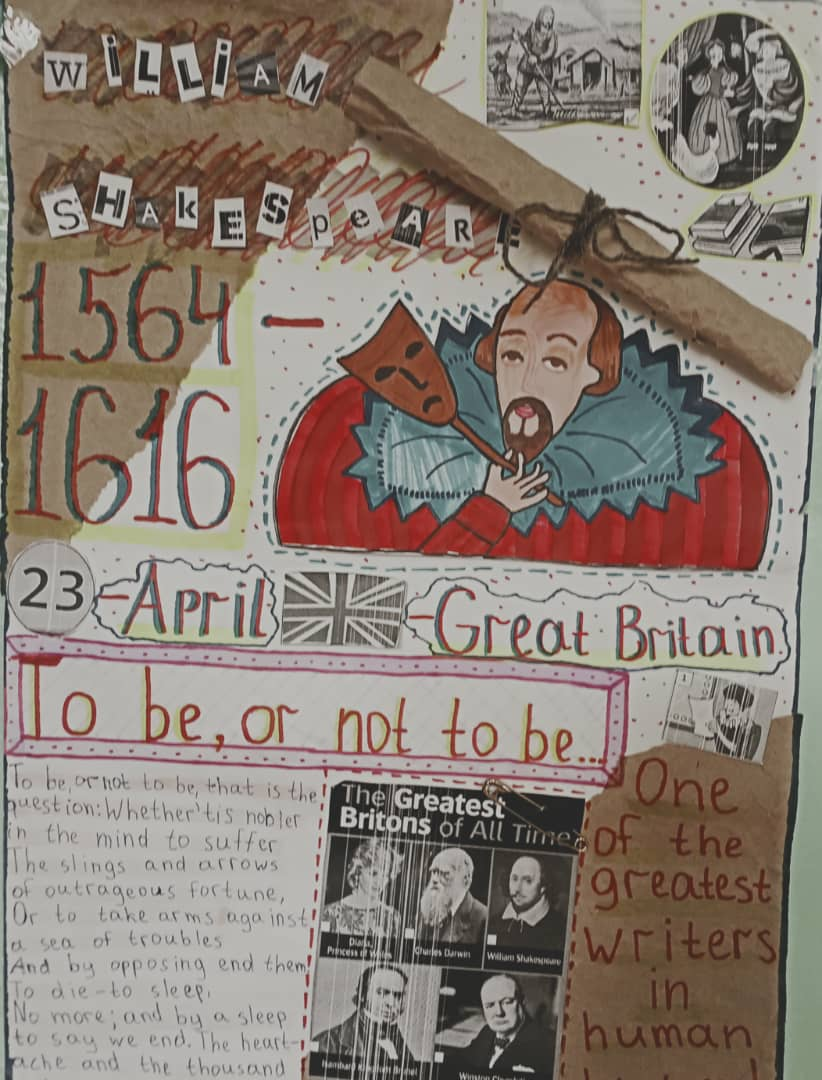 WiLLiAM
SHAkESpeARE
1564 –
1616
23 - April - Great Britain
To be, or not to be...
To be, or not to be, that is the
question: Whether 'tis nobler
in the mind to suffer
The slings and arrows
of outrageous fortune,
Or to take arms against
a sea of troubles
And by opposing end them
To die-to sleep,
No more; and by a sleep
to say we end. The heart-
ache and the thousand
The Greatest
Britons of All Time
Diana,
Princess of Wales
Charles Darwin
William Shakespeare
Isambard Kingdom Brunel
Winston
One
of the
greatest
writers
in
human